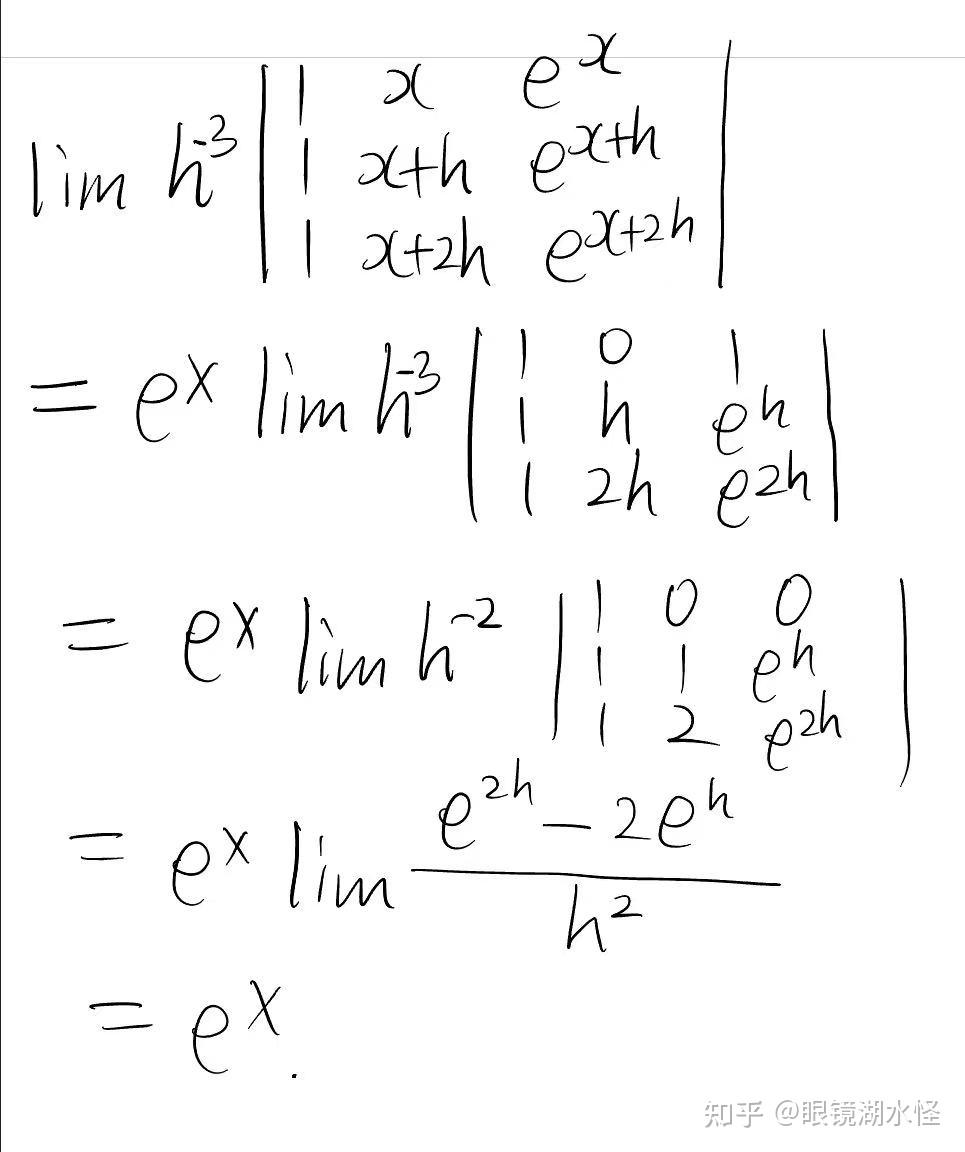 lim h⁻³ | 1 x eˣ |
| 1 x+h eˣ⁺ʰ |
| 1 x+2h eˣ⁺²ʰ |
= eˣ lim h⁻³ | 1 0 1 |
| 1 h eʰ |
| 1 2h e²ʰ |
= eˣ lim h⁻² | 1 0 0 |
| 1 1 eʰ |
| 1 2 e²ʰ |
= eˣ lim (e²ʰ − 2eʰ) / h²
= eˣ.
知乎 @眼镜湖水怪